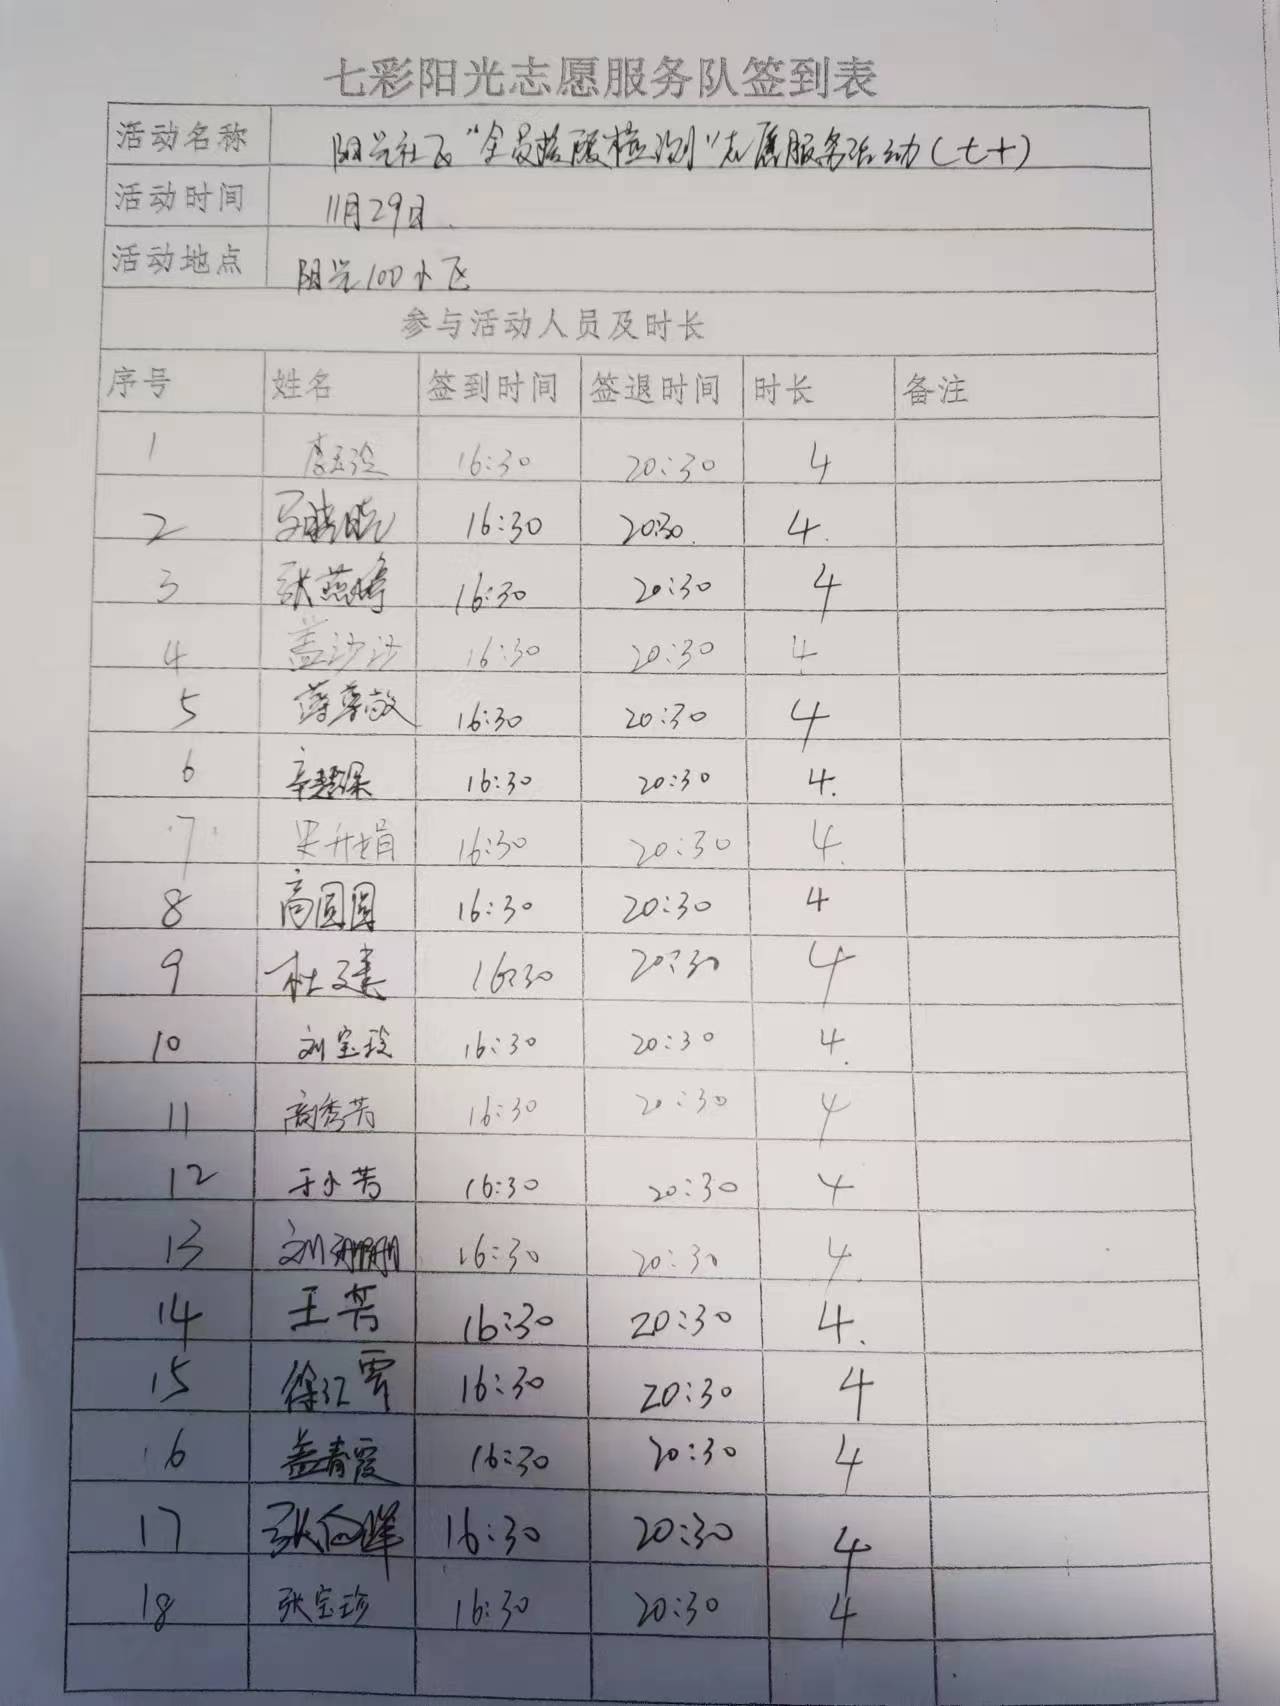 七彩阳光志愿服务队签到表
活动名称 阳光社区"全员核酸检测"志愿服务活动(七十)
活动时间 11月29日.
活动地点 阳光100小区
参与活动人员及时长
序号 姓名 签到时间 签退时间 时长 备注
1 16:30 20:30 4
2 16:30 20:30. 4.
3 张燕婷 16:30 20:30 4
4 盖沙沙 16:30 20:30 4
5 薛尊敬 16:30 20:30 4
6 16:30 20:30 4.
7 16:30 20:30 4.
8 高圆圆 16:30 20:30 4
9 杜文建 16:30 20:30 4
10 刘宝玲 16:30 20:30 4.
11 商秀芳 16:30 20:30 4
12 于小芳 16:30 20:30 4
13 刘珊珊 16:30 20:30 4.
14 王芳 16:30 20:30 4.
15 徐红霞 16:30 20:30 4
16 盖青霞 16:30 20:30 4
17 16:30 20:30 4
18 张宝珍 16:30 20:30 4